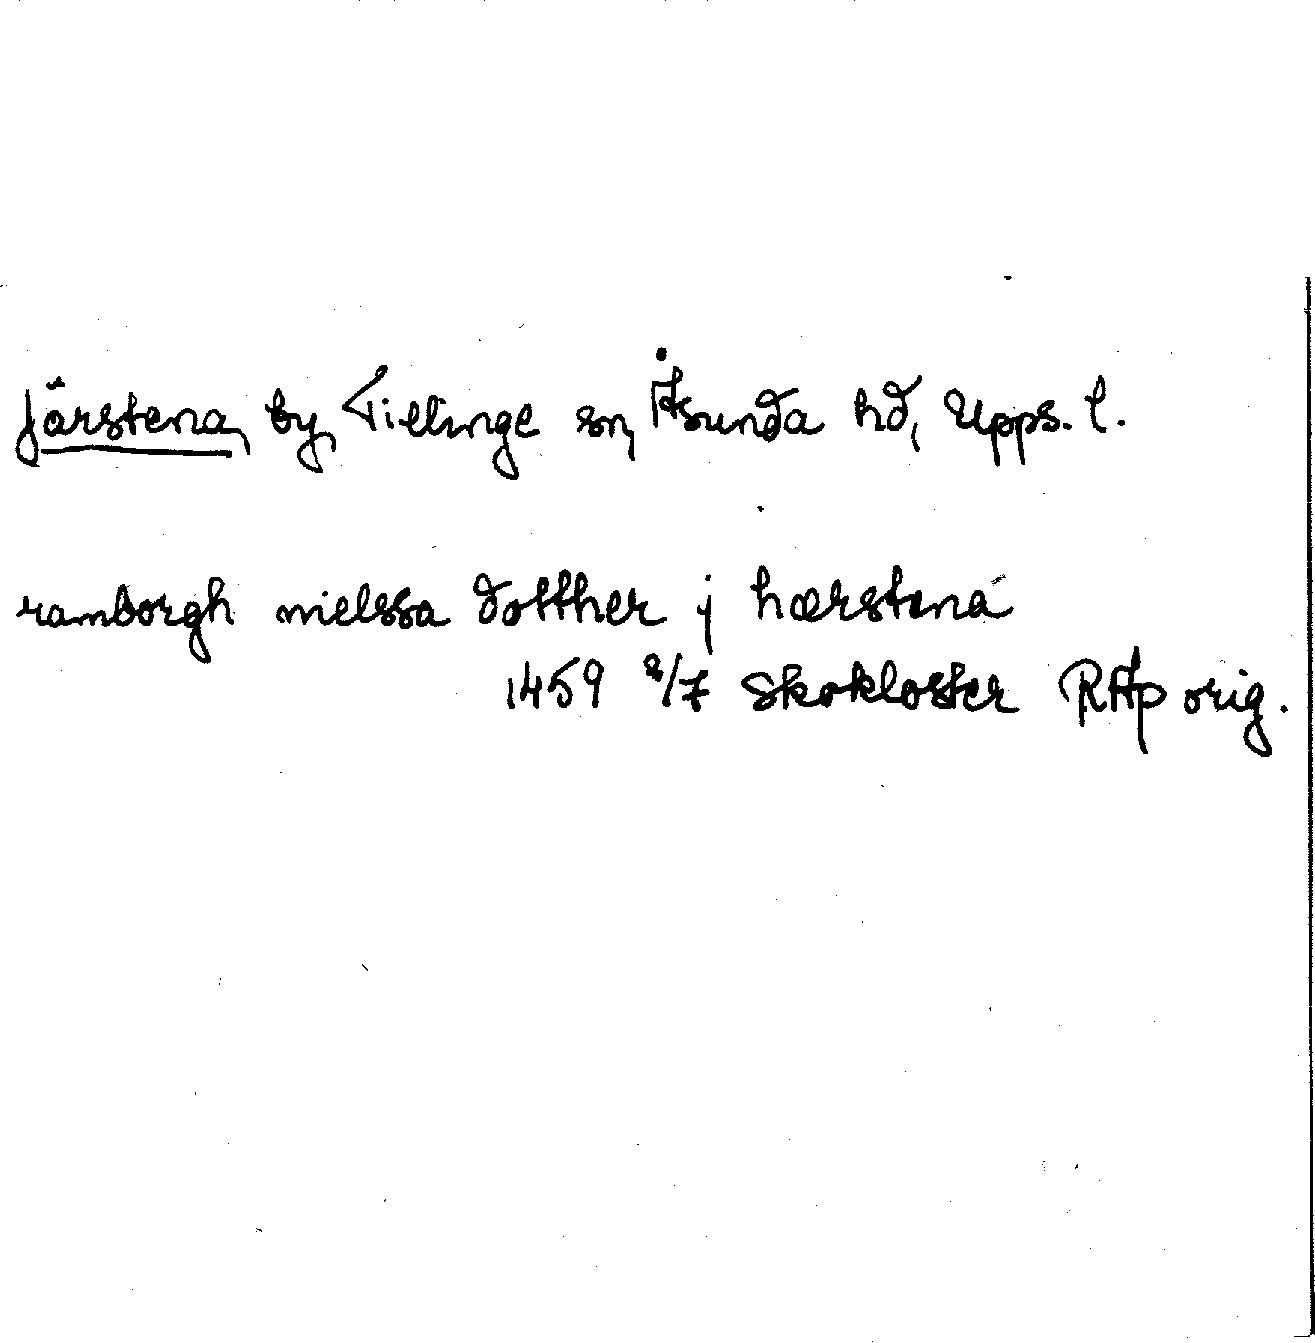 Järstena, by, Tillinge sn, Åsunda hd, Upps. l.
ramborgh nielssa dotther j hærstena
1459 2/7 Skokloster RAp orig.